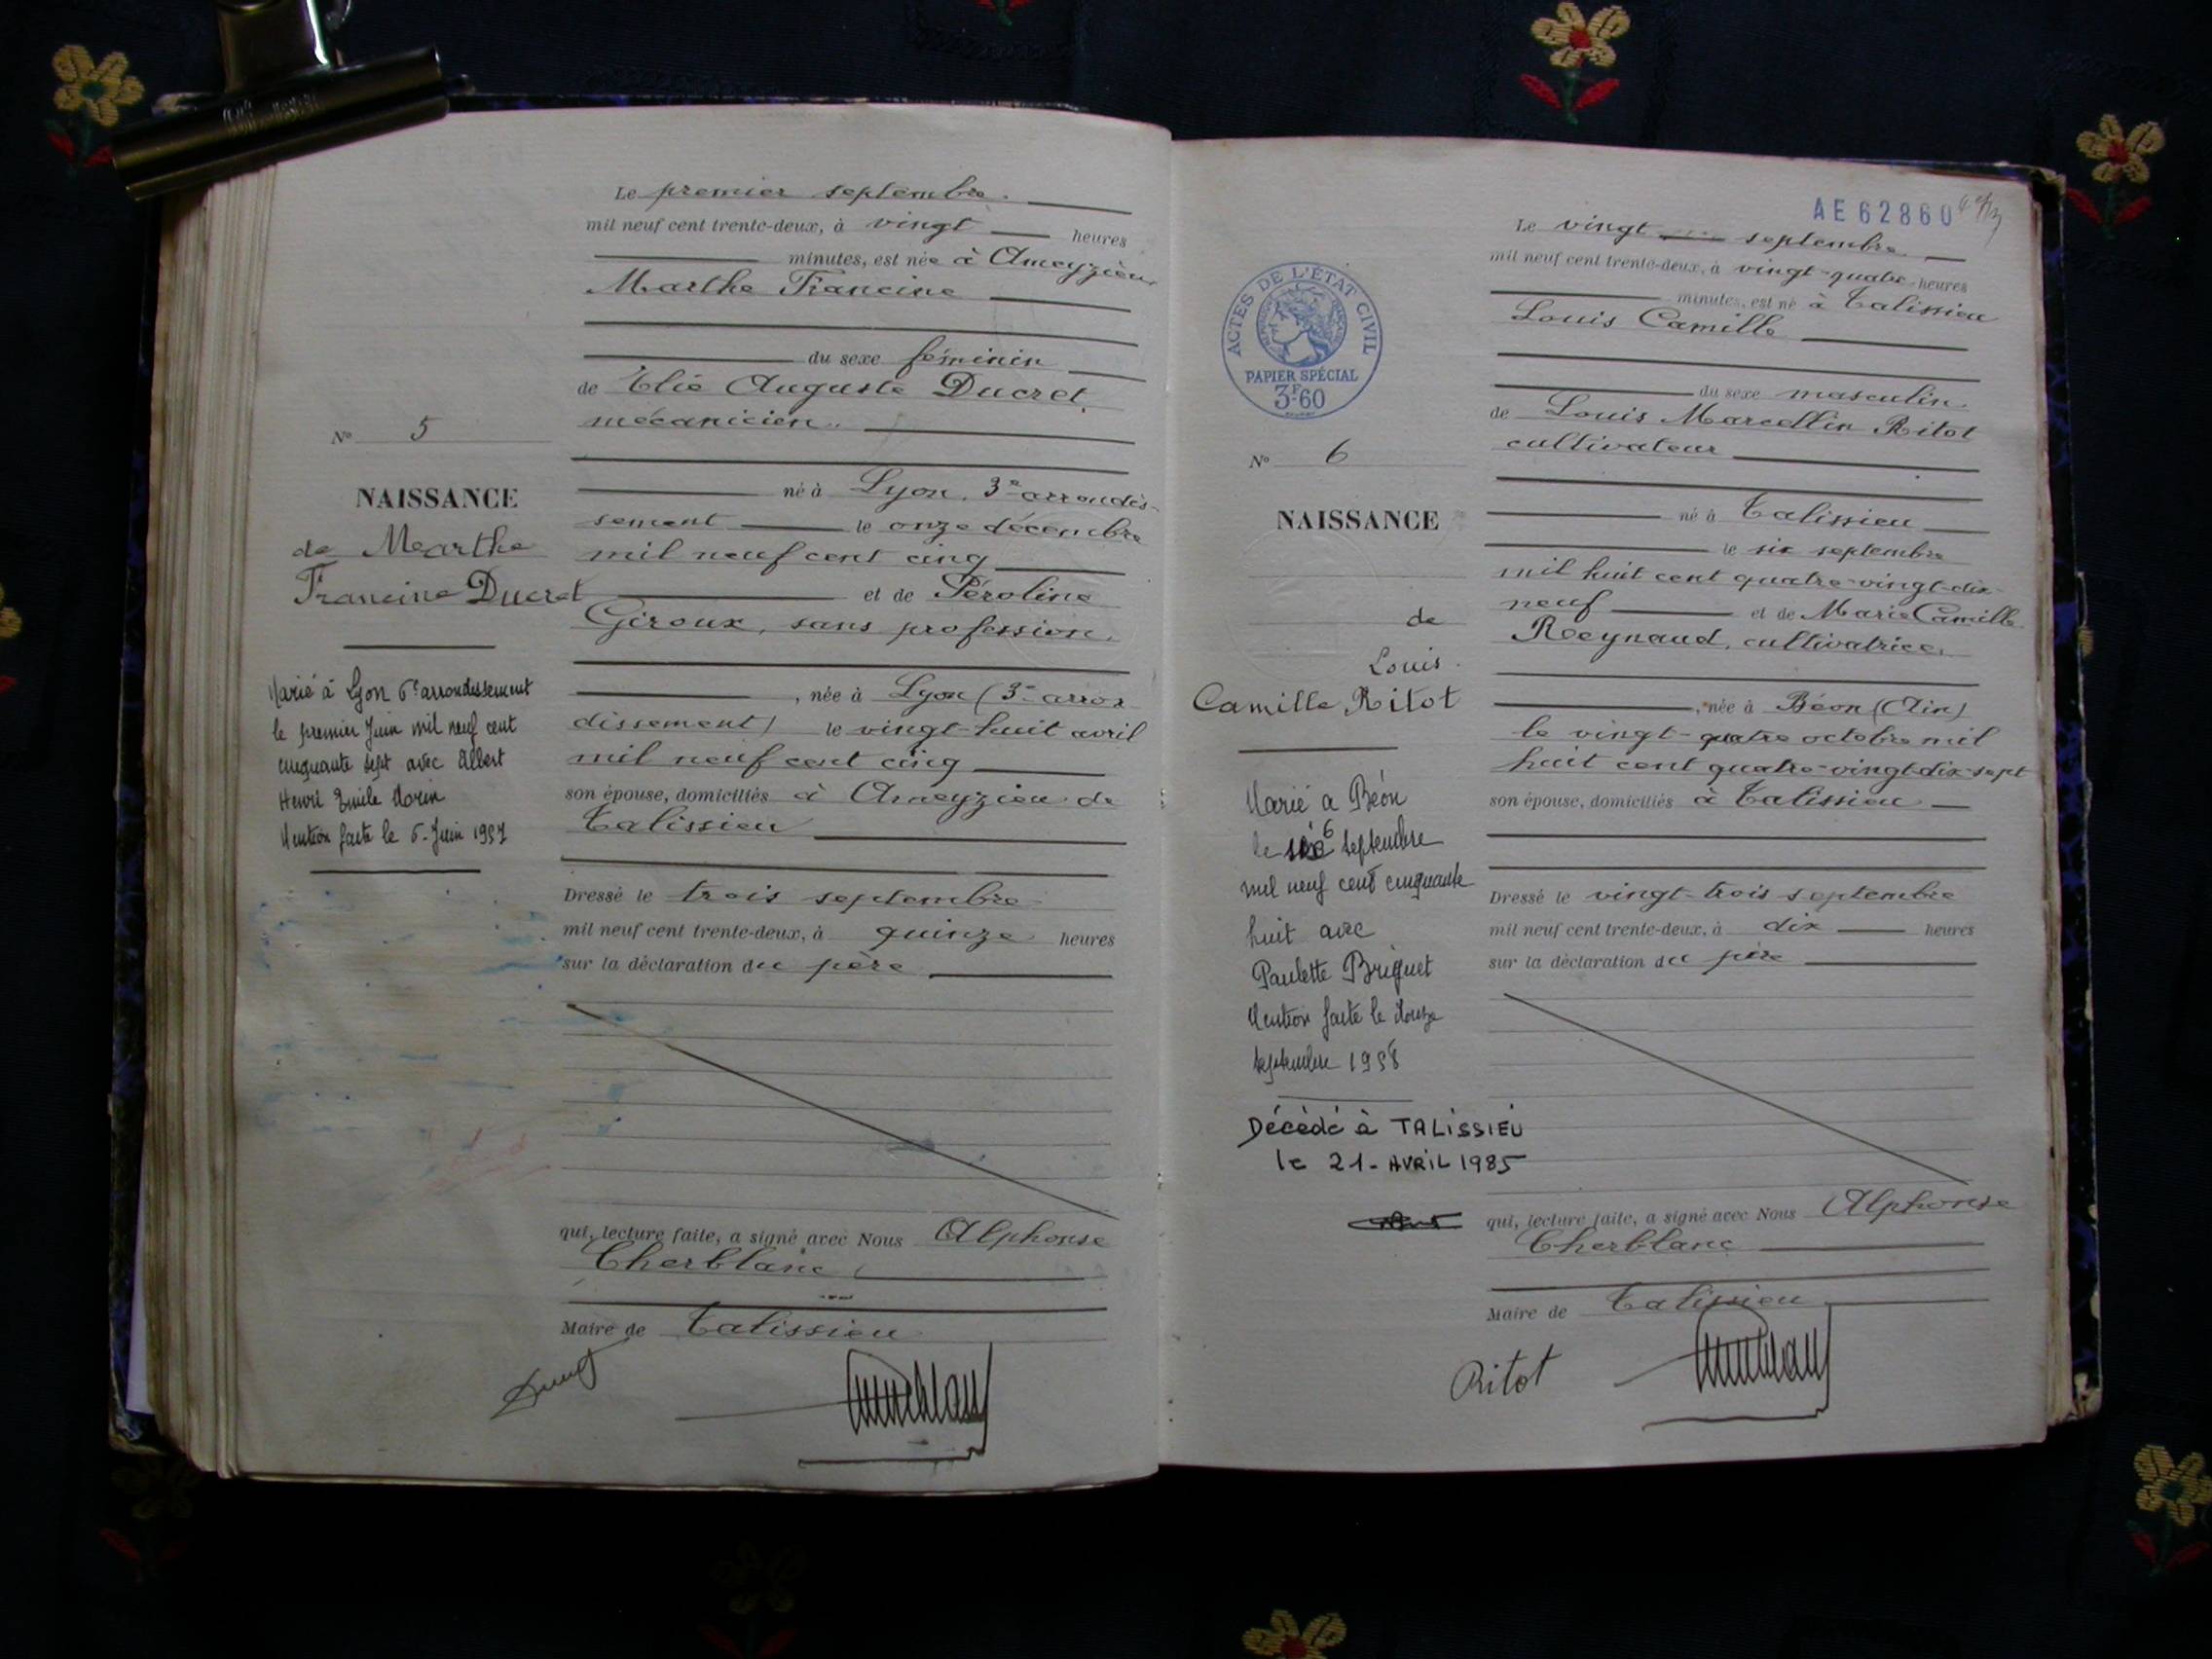 Le premier septembre
mil neuf cent trente-deux, à vingt heures
minutes, est née à Ameyzieu
Marthe Francine
du sexe féminin
de Elie Auguste Ducret,
mécanicien
né à Lyon, 3e arrondis-
sement le onze décembre
mil neuf cent cinq
et de Péroline
Giroux, sans profession,
, née à Lyon (3e arron
dissement) le vingt-huit avril
mil neuf cent cinq
son épouse, domiciliés à Ameyzieu de
Talissieu
Dressé le trois septembre
mil neuf cent trente-deux, à quinze heures
sur la déclaration du père
qui, lecture faite, a signé avec Nous Alphonse
Cherblanc
Maire de Talissieu
No 5
NAISSANCE
de Marthe
Francine Ducret
Marié à Lyon 6e arrondissement
le premier Juin mil neuf cent
cinquante sept avec Albert
Henri Emile Morin
Mention faite le 6 - Juin 1957
AE 62860
Le vingt septembre
mil neuf cent trente-deux, à vingt-quatre heures
minutes, est né à Talissieu
Louis Camille
du sexe masculin
de Louis Marcellin Ritot
cultivateur
né à Talissieu
le six septembre
mil huit cent quatre-vingt-dix-
neuf et de Marie Camille
Reynaud, cultivatrice,
, née à Béon (Ain)
le vingt-quatre octobre mil
huit cent quatre-vingt-dix-sept
son épouse, domiciliés à Talissieu
Dressé le vingt-trois septembre
mil neuf cent trente-deux, à dix heures
sur la déclaration du père
qui, lecture faite, a signé avec Nous Alphonse
Cherblanc
Maire de Talissieu
Ritot
ACTES DE L'ÉTAT CIVIL
PAPIER SPÉCIAL
3F60
No 6
NAISSANCE
de
Louis
Camille Ritot
Marié a Béon
le 6 septembre
mil neuf cent cinquante
huit avec
Paulette Briquet
Mention faite le douze
septembre 1958
Décédé à TALISSIEU
le 21 - AVRIL 1985